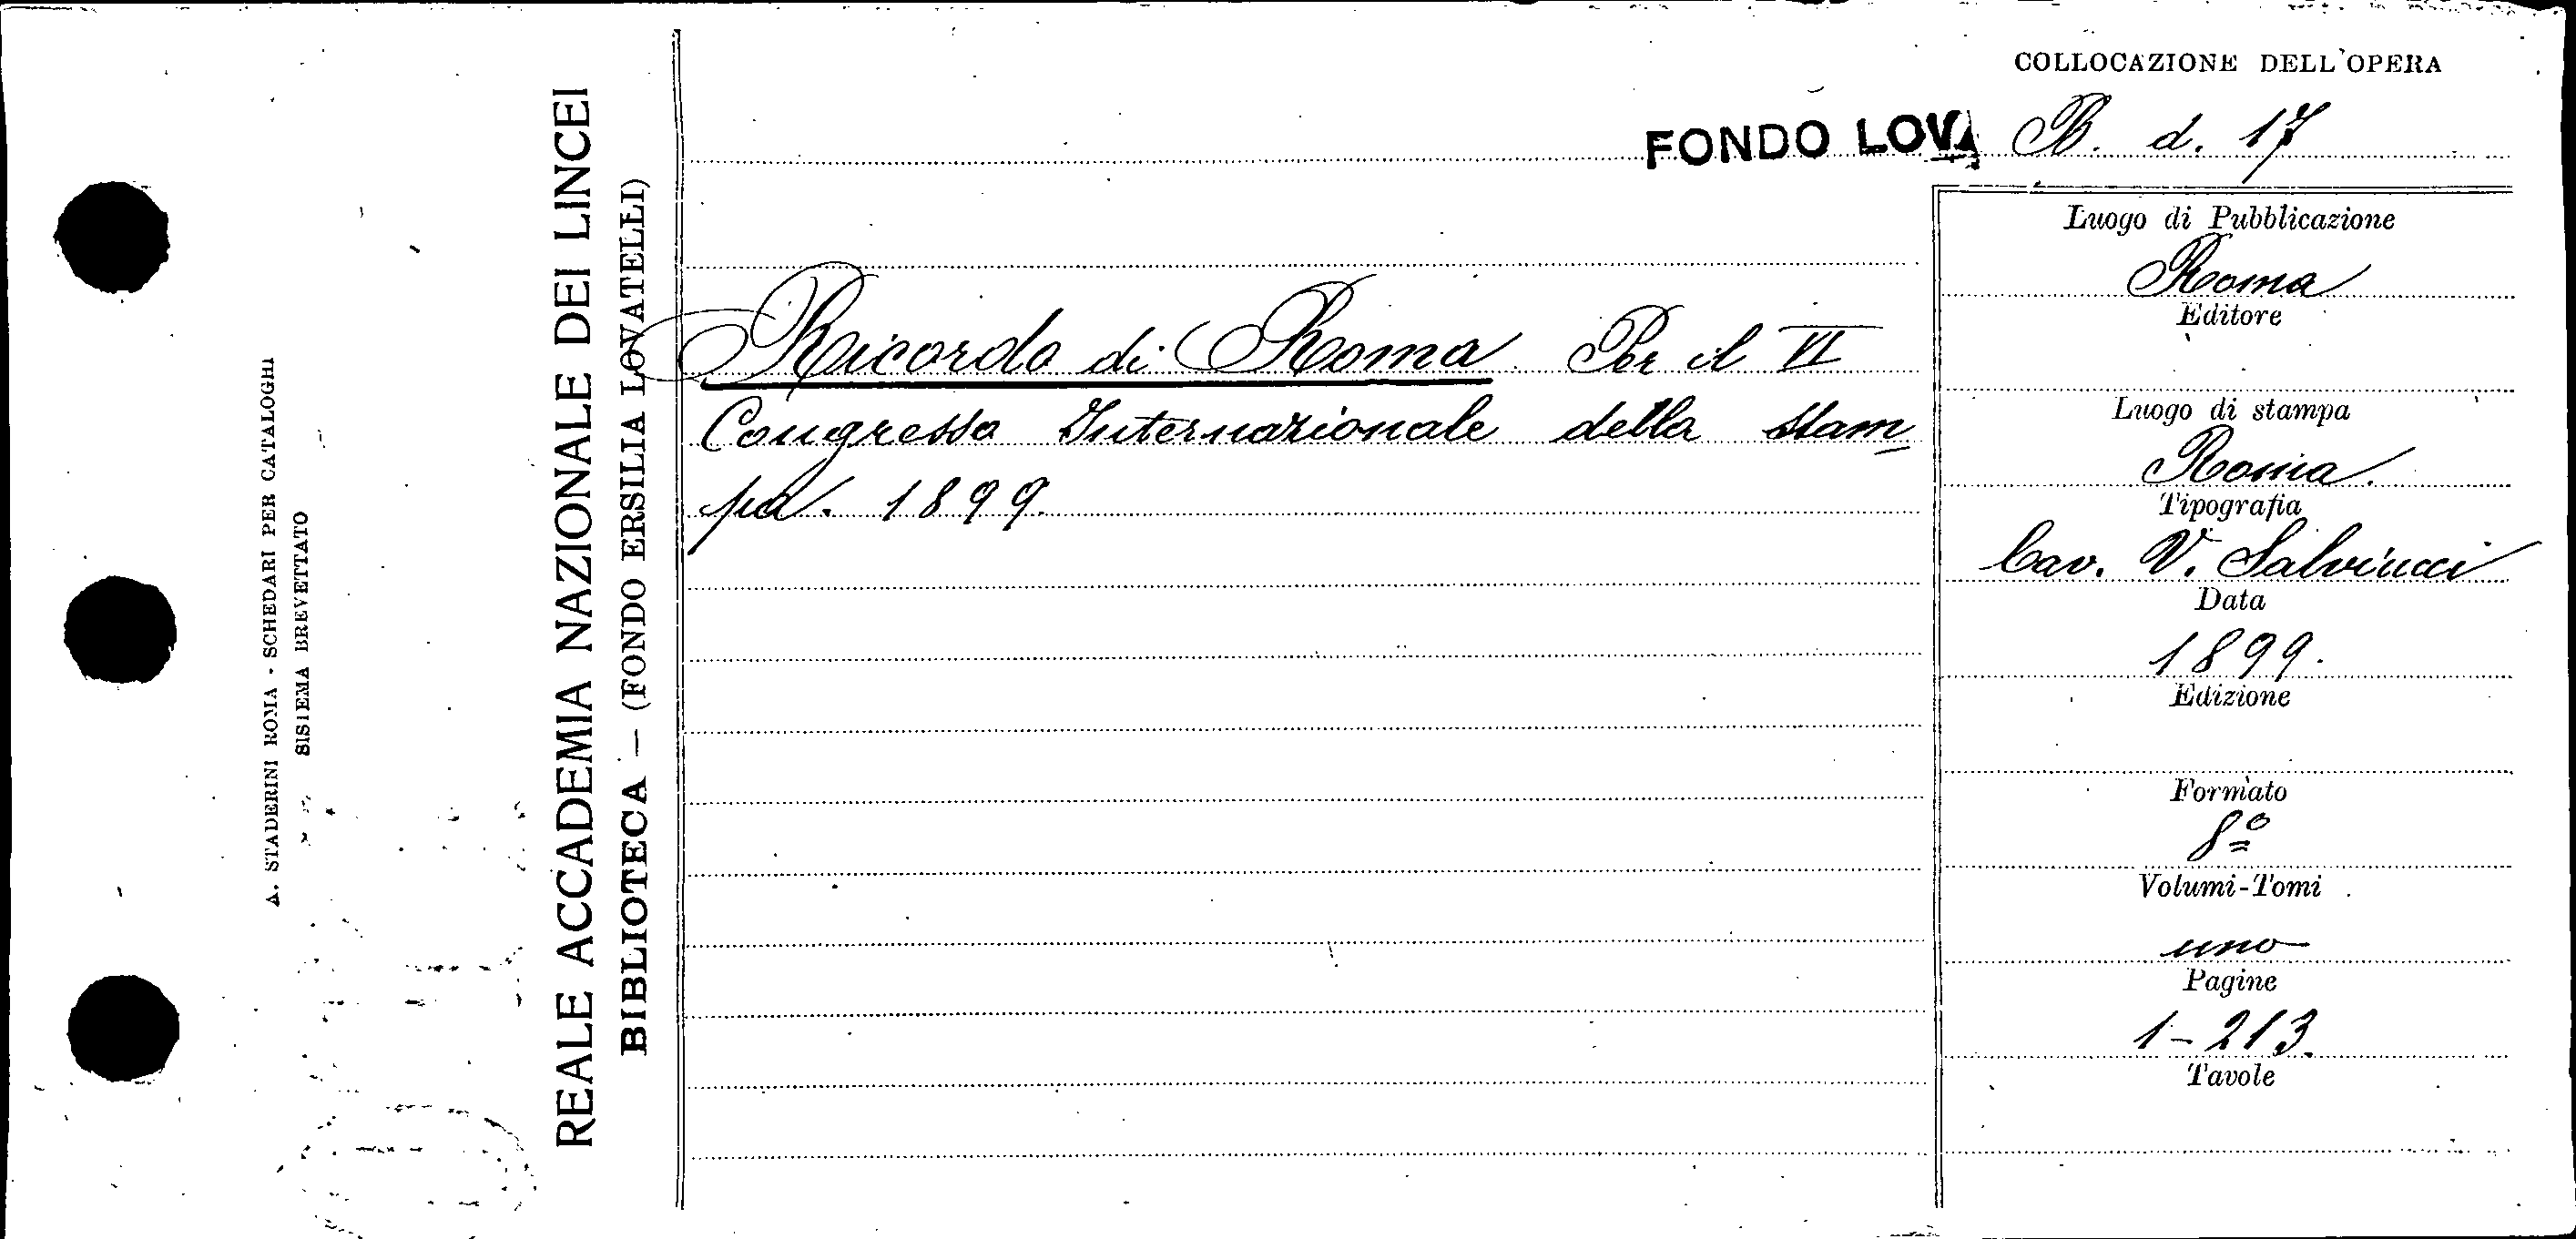 A. STADERINI ROMA - SCHEDARI PER CATALOGHI
SISTEMA BREVETTATO
REALE ACCADEMIA NAZIONALE DEI LINCEI
BIBLIOTECA — (FONDO ERSILIA LOVATELLI)
COLLOCAZIONE DELL'OPERA
FONDO LOVA B. d. 17
Ricordo di Roma. Per il VI
Congresso Internazionale della stam
pa. 1899.
Luogo di Pubblicazione
Roma
Editore
Luogo di stampa
Roma.
Tipografia
Cav. V. Salviucci
Data
1899.
Edizione
Formato
8º
Volumi-Tomi
uno
Pagine
1-213.
Tavole